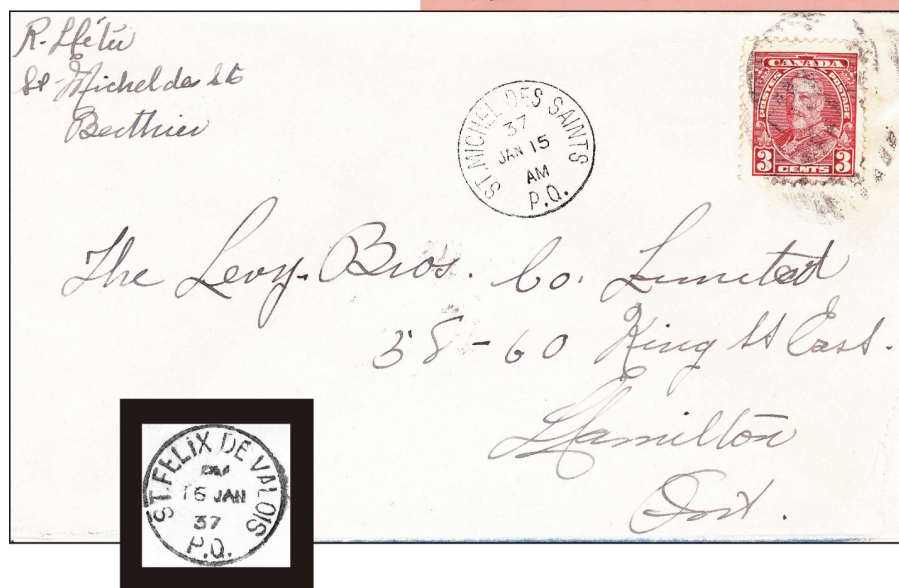 R. Hétu
St-Michel des Sts
Berthier
ST. MICHEL DES SAINTS
37
JAN 15
AM
P.Q.
CANADA
POSTES POSTAGE
3 CENTS 3
The Levy Bros. Co. Limited
58-60 King St East.
Hamilton
Ont.
ST. FELIX DE VALOIS
16 JAN
37
P.Q.